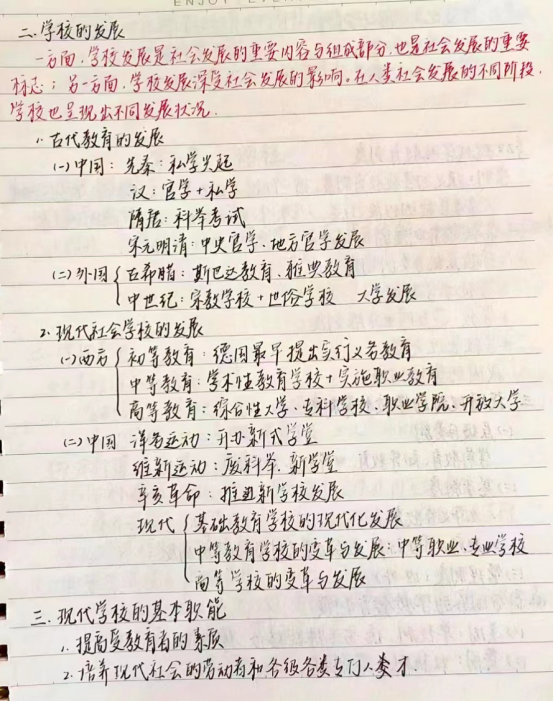 ENJOY
二、学校的发展
一方面,学校发展是社会发展的重要内容与组成部分,也是社会发展的重要
标志;另一方面,学校发展深受社会发展的影响。在人类社会发展的不同阶段,
学校也呈现出不同发展状况.
1. 古代教育的发展
(一)中国:先秦:私学兴起
汉:官学+私学
隋唐:科举考试
宋元明清:中央官学、地方官学发展
(二)外国 { 古希腊:斯巴达教育、雅典教育
中世纪:宗教学校+世俗学校 大学发展
2. 现代社会学校的发展
(一)西方 { 初等教育:德国最早提出实行义务教育
中等教育:学术性教育学校+实施职业教育
高等教育:综合性大学、专科学校、职业学院、开放大学
(二)中国 洋务运动:开办新式学堂
维新运动:废科举、新学堂
辛亥革命:推进新学校发展
现代 { 基础教育学校的现代化发展
中等教育学校的变革与发展:中等职业、专业学校
高等学校的变革与发展
三、现代学校的基本职能
1. 提高受教育者的素质
2. 培养现代社会的劳动者和各级各类专门人类才.